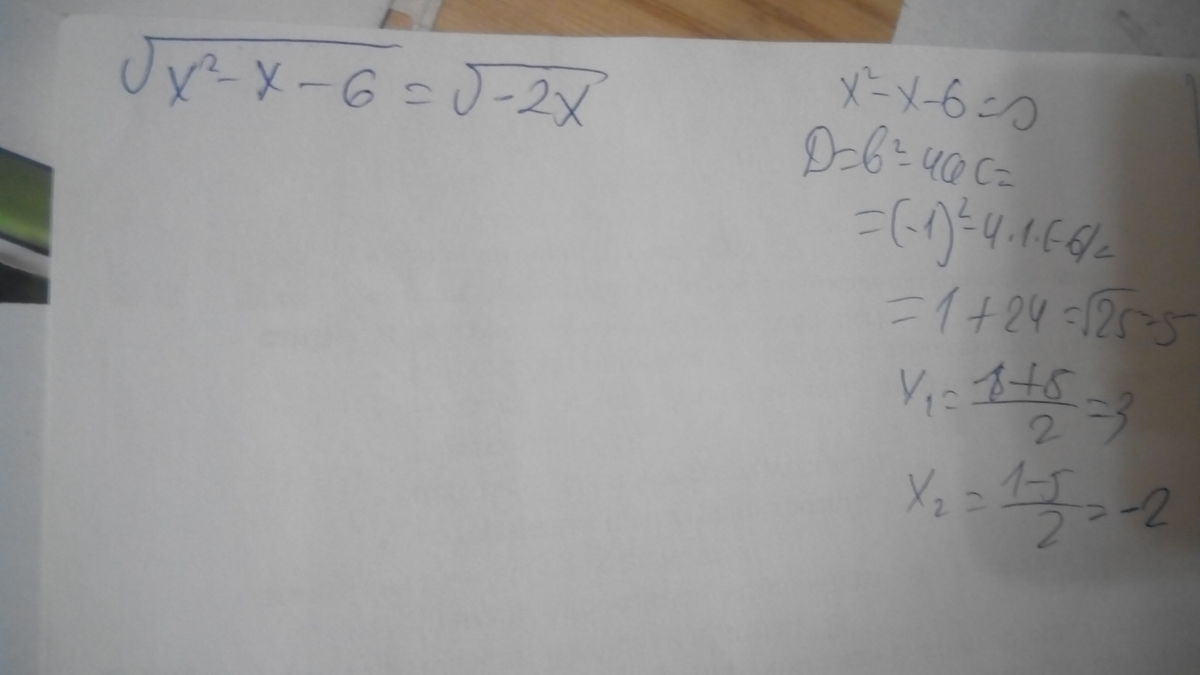 √x²-x-6 = √-2x
x²-x-6=0
D=b²-4ac=
=(-1)²-4·1·(-6)=
=1+24=√25=5
x₁=1+5/2=3
x₂=1-5/2=-2